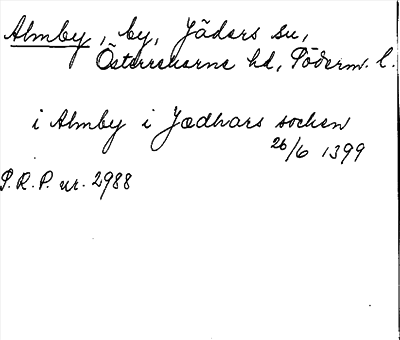 Almby, by, Jäders sn,
Österrekarne hd, Söderm. l.
i Almby i Jædhars sochen
26/6 1399
S.R.P. nr. 2988